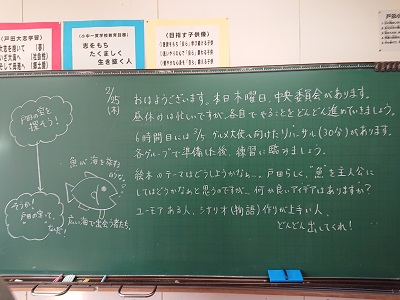 (戸田大志学習)
(小中一貫学校教育目標)
志をもち
たくましく
生き抜く人
(目指す子供像)
2/25
(木)
おはようございます。本日木曜日、中央委員会があります。
昼休けは忙しいですが、各自でやることをどんどん進めていきましょう。
6時間目には3/5 グルメ大使へ向けたリハーサル(30分)があります。
各グループで準備した後、練習に臨みましょう。
絵本のテーマはどうしようかなぁ…。戸田らしく、"魚"を主人公に
してはどうかなぁと思うのですが、何か良いアイデアはありますか?
ユーモアある人、シナリオ(物語)作りが上手い人、
どんどん出してくれ!
戸田の宝を
探そう!
魚が海を旅
広い海で出会う者たち。
そうか!
戸田の宝って、
なんだ!